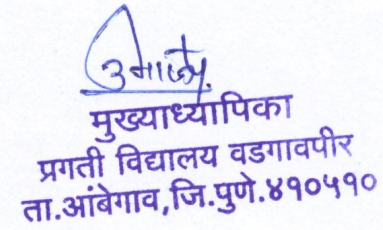 मुख्याध्यापिका
प्रगती विद्यालय वडगावपीर
ता.आंबेगाव,जि.पुणे.४१०५१०